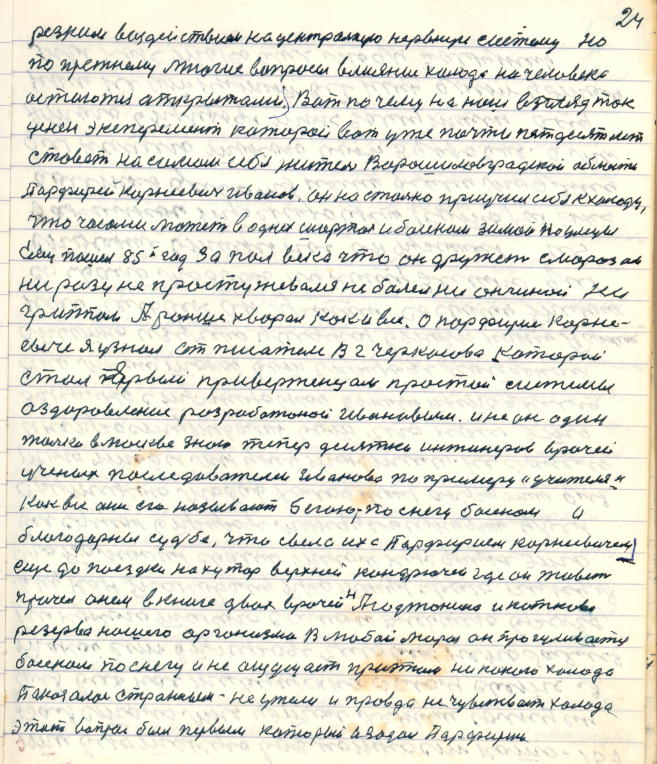 24
резким воздействием на центральную нервную систему но
по прежнему многие вопросы влияние холода на человека
остаются аткрытами, Вот почему на наш взгляд ток
ценен эксперемент каторой вот уже почти пятдесят лет
ставет на самом себя жител Ворошиловградской области
Парфирей Корнеевич Иванов. он на столко приучил себя к холоду,
что часами может в одних шортах и босиком зимой по улицы
Ему пошел 85й год За пол века что он дружет с морозам
ни разу не простуживался не болел ни ончиной ни
гриппом А ронше хворал как и все. О парфирие Корне-
евиче я узнал от писателя В г Черкасова Которой
стал первый привертенцам простой системы
оздоровление розработаной Ивановым. и не он один
толко в москве знаю тепер десятки инжинеров врачей
ученых последователей Иванова по примеру "учителя"
как все они его называют бегают по снегу босиком и
благодарны судбе, что свела их с Парфирием Корнеевичем
еще до поездки на хутор верхней кондрючей где он живет
прочел о нем в книге двох врачей "
резерва нашего организма В любой мороз он прогуливается
босиком по снегу и не ощущает притом никокого холода
Показалос странным - неужели и правда не чувствавает холода
этот вопрос был первым который я задал Парфирию